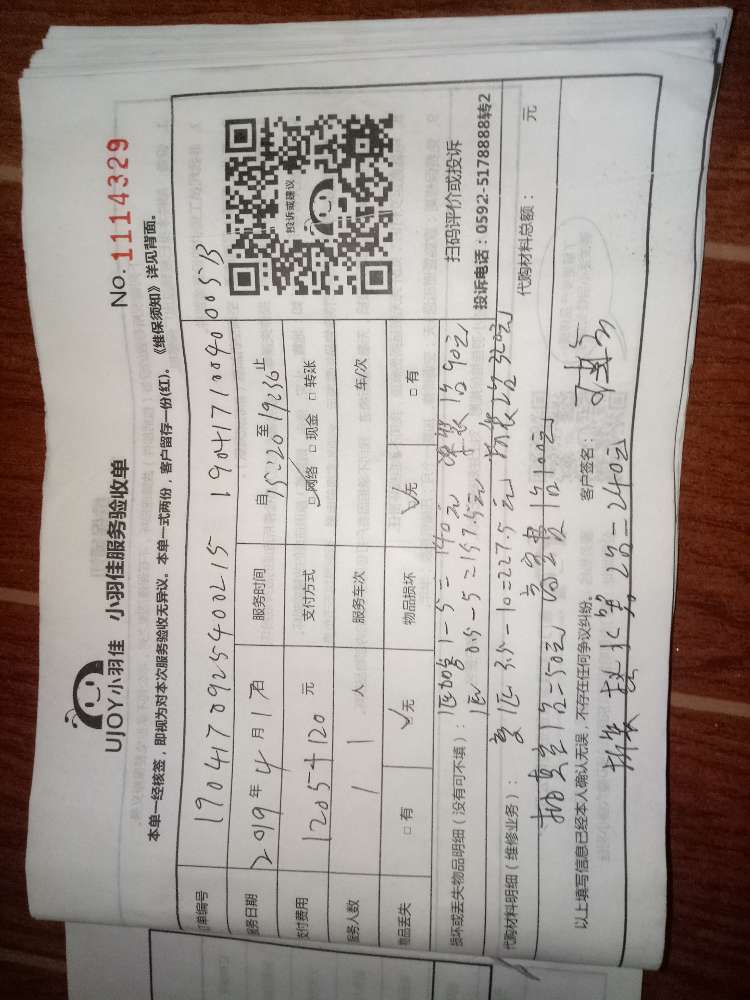 UJOY小羽佳 小羽佳服务验收单
No. 1114329
本单一经核签，即视为对本次服务验收无异议。本单一式两份，客户留存一份(红)。《维保须知》详见背面。
单编号 1904170925400215 19041710094000513
务日期 2019年4月17日 服务时间 自15:20至19:36止
付费用 1205+120元 支付方式 □网络 □现金 □转账
务人数 1人 服务车次 1车/次
品丢失 □有 □无 物品损坏 □无 □有
投诉或建议
扫码评价或投诉
投诉电话：0592-5178888转2
损坏或丢失物品明细（没有可不填）：
1-5=140元 1台90元
0.5-5=157.5元
代购材料明细（维修业务）：
3.5-10=227.5元 320元
代购材料总额： 元
抽真空1台=50元 1台100元
以上填写信息已经本人确认无误，不存在任何争议纠纷。 客户签名：
2台=240元